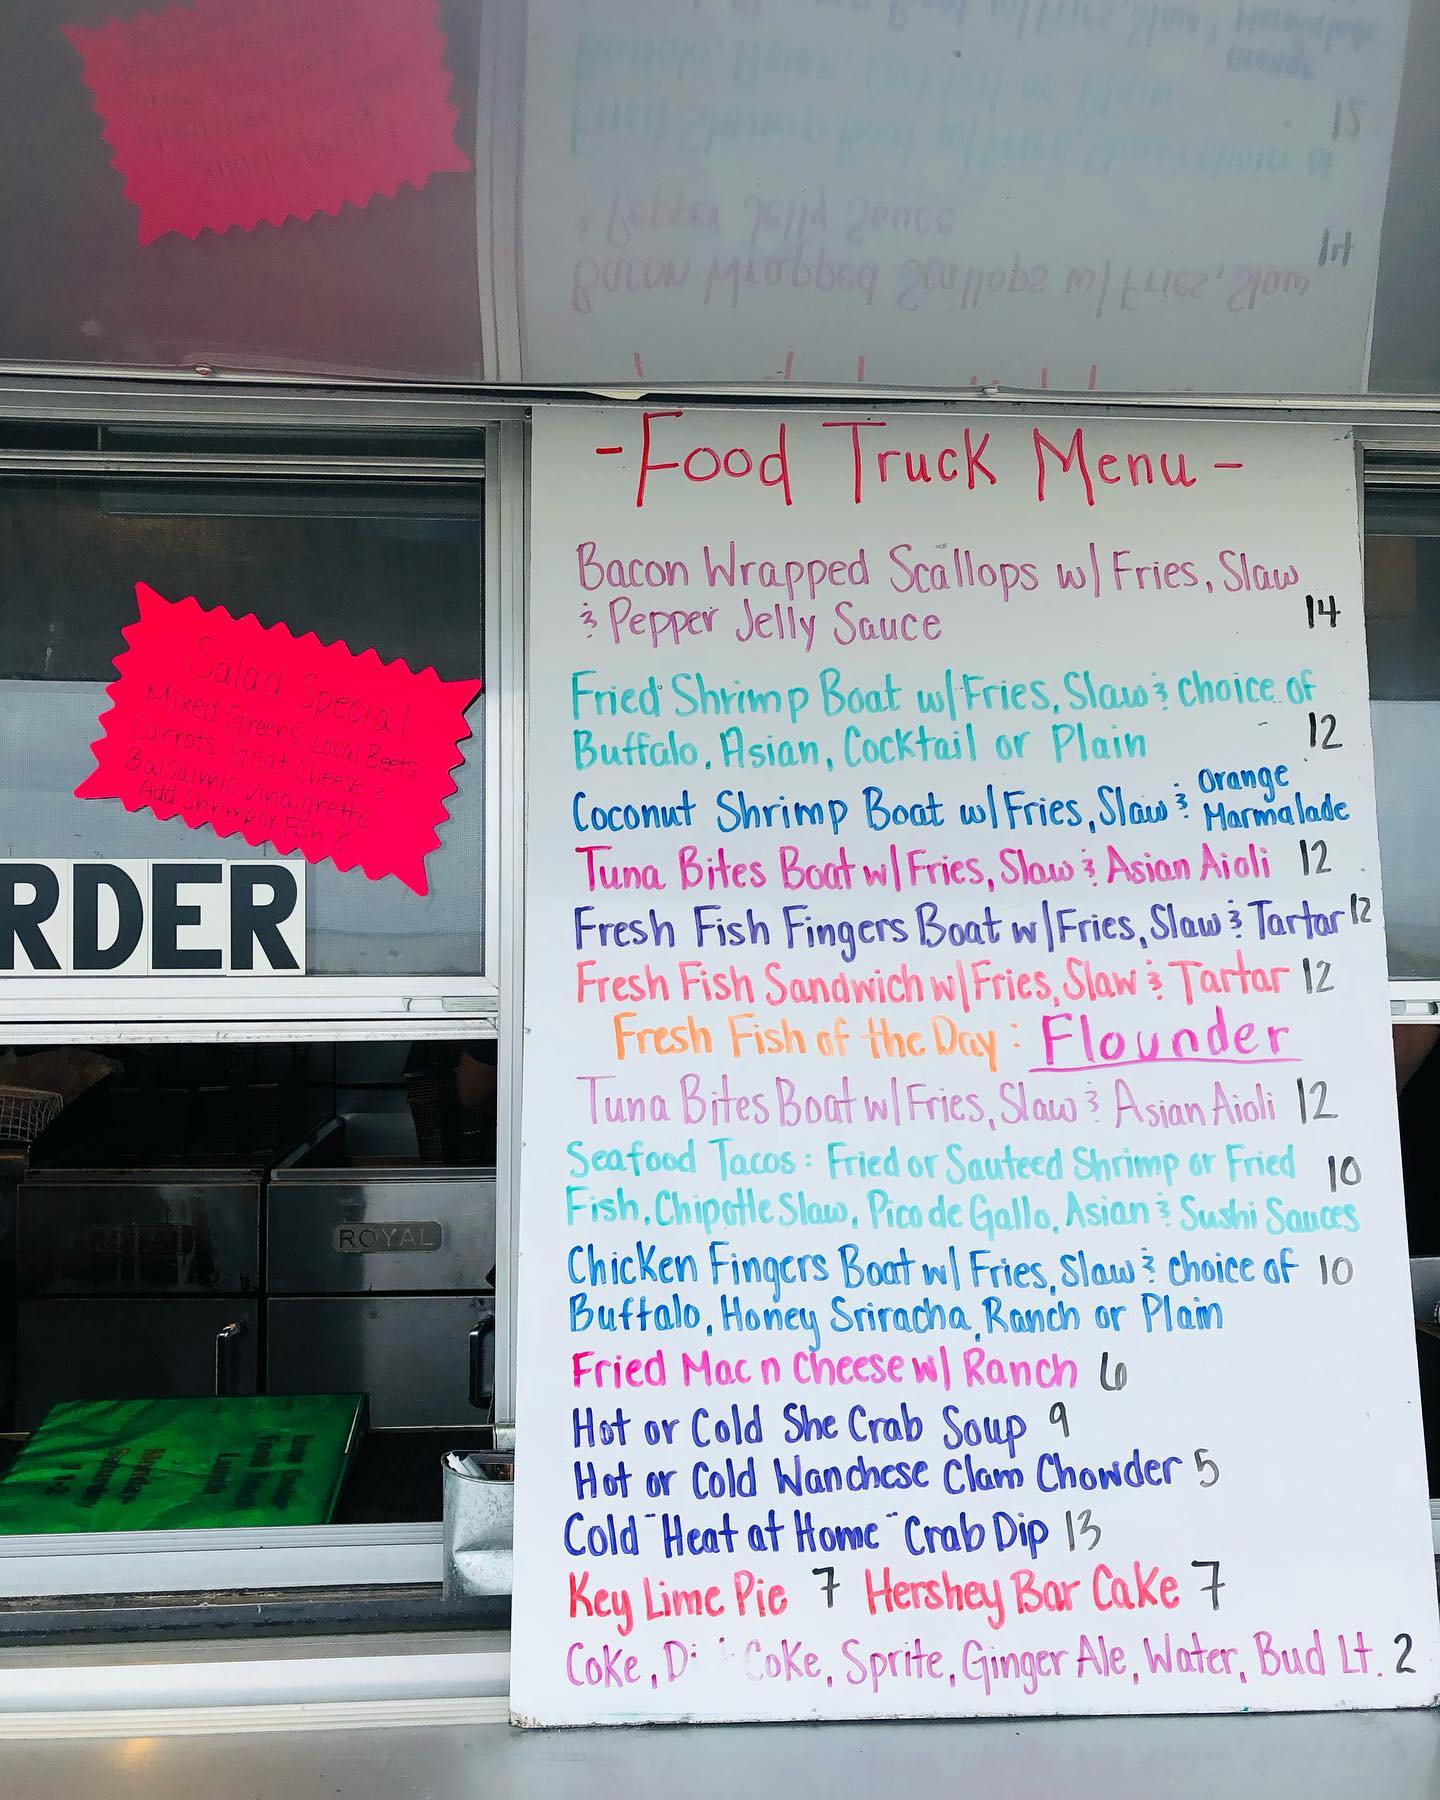 -Food Truck Menu-
Bacon Wrapped Scallops w/ Fries, Slaw
& Pepper Jelly Sauce 14
Fried Shrimp Boat w/Fries, Slaw & choice of
Buffalo, Asian, Cocktail or Plain 12
Coconut Shrimp Boat w/Fries, Slaw & Orange
Marmalade
Tuna Bites Boat w/Fries, Slaw & Asian Aioli 12
Fresh Fish Fingers Boat w/Fries, Slaw & Tartar 12
Fresh Fish Sandwich w/Fries, Slaw & Tartar 12
Fresh Fish of the Day: Flounder
Tuna Bites Boat w/Fries, Slaw & Asian Aioli 12
Seafood Tacos: Fried or Sauteed Shrimp or Fried 10
Fish, Chipotle Slaw, Pico de Gallo, Asian & Sushi Sauces
Chicken Fingers Boat w/ Fries, Slaw & choice of 10
Buffalo, Honey Sriracha, Ranch or Plain
Fried Mac n Cheese w/ Ranch 6
Hot or Cold She Crab Soup 9
Hot or Cold Wanchese Clam Chowder 5
Cold "Heat at Home" Crab Dip 13
Key Lime Pie 7 Hershey Bar Cake 7
Coke, Coke, Sprite, Ginger Ale, Water, Bud Lt. 2
Salad Special
Mixed Greens, Local Beets
Carrots, Goat Cheese &
Balsalmic Vinaigrette
Add Shrimp or Fish 8
RDER
ROYAL
ROYAL